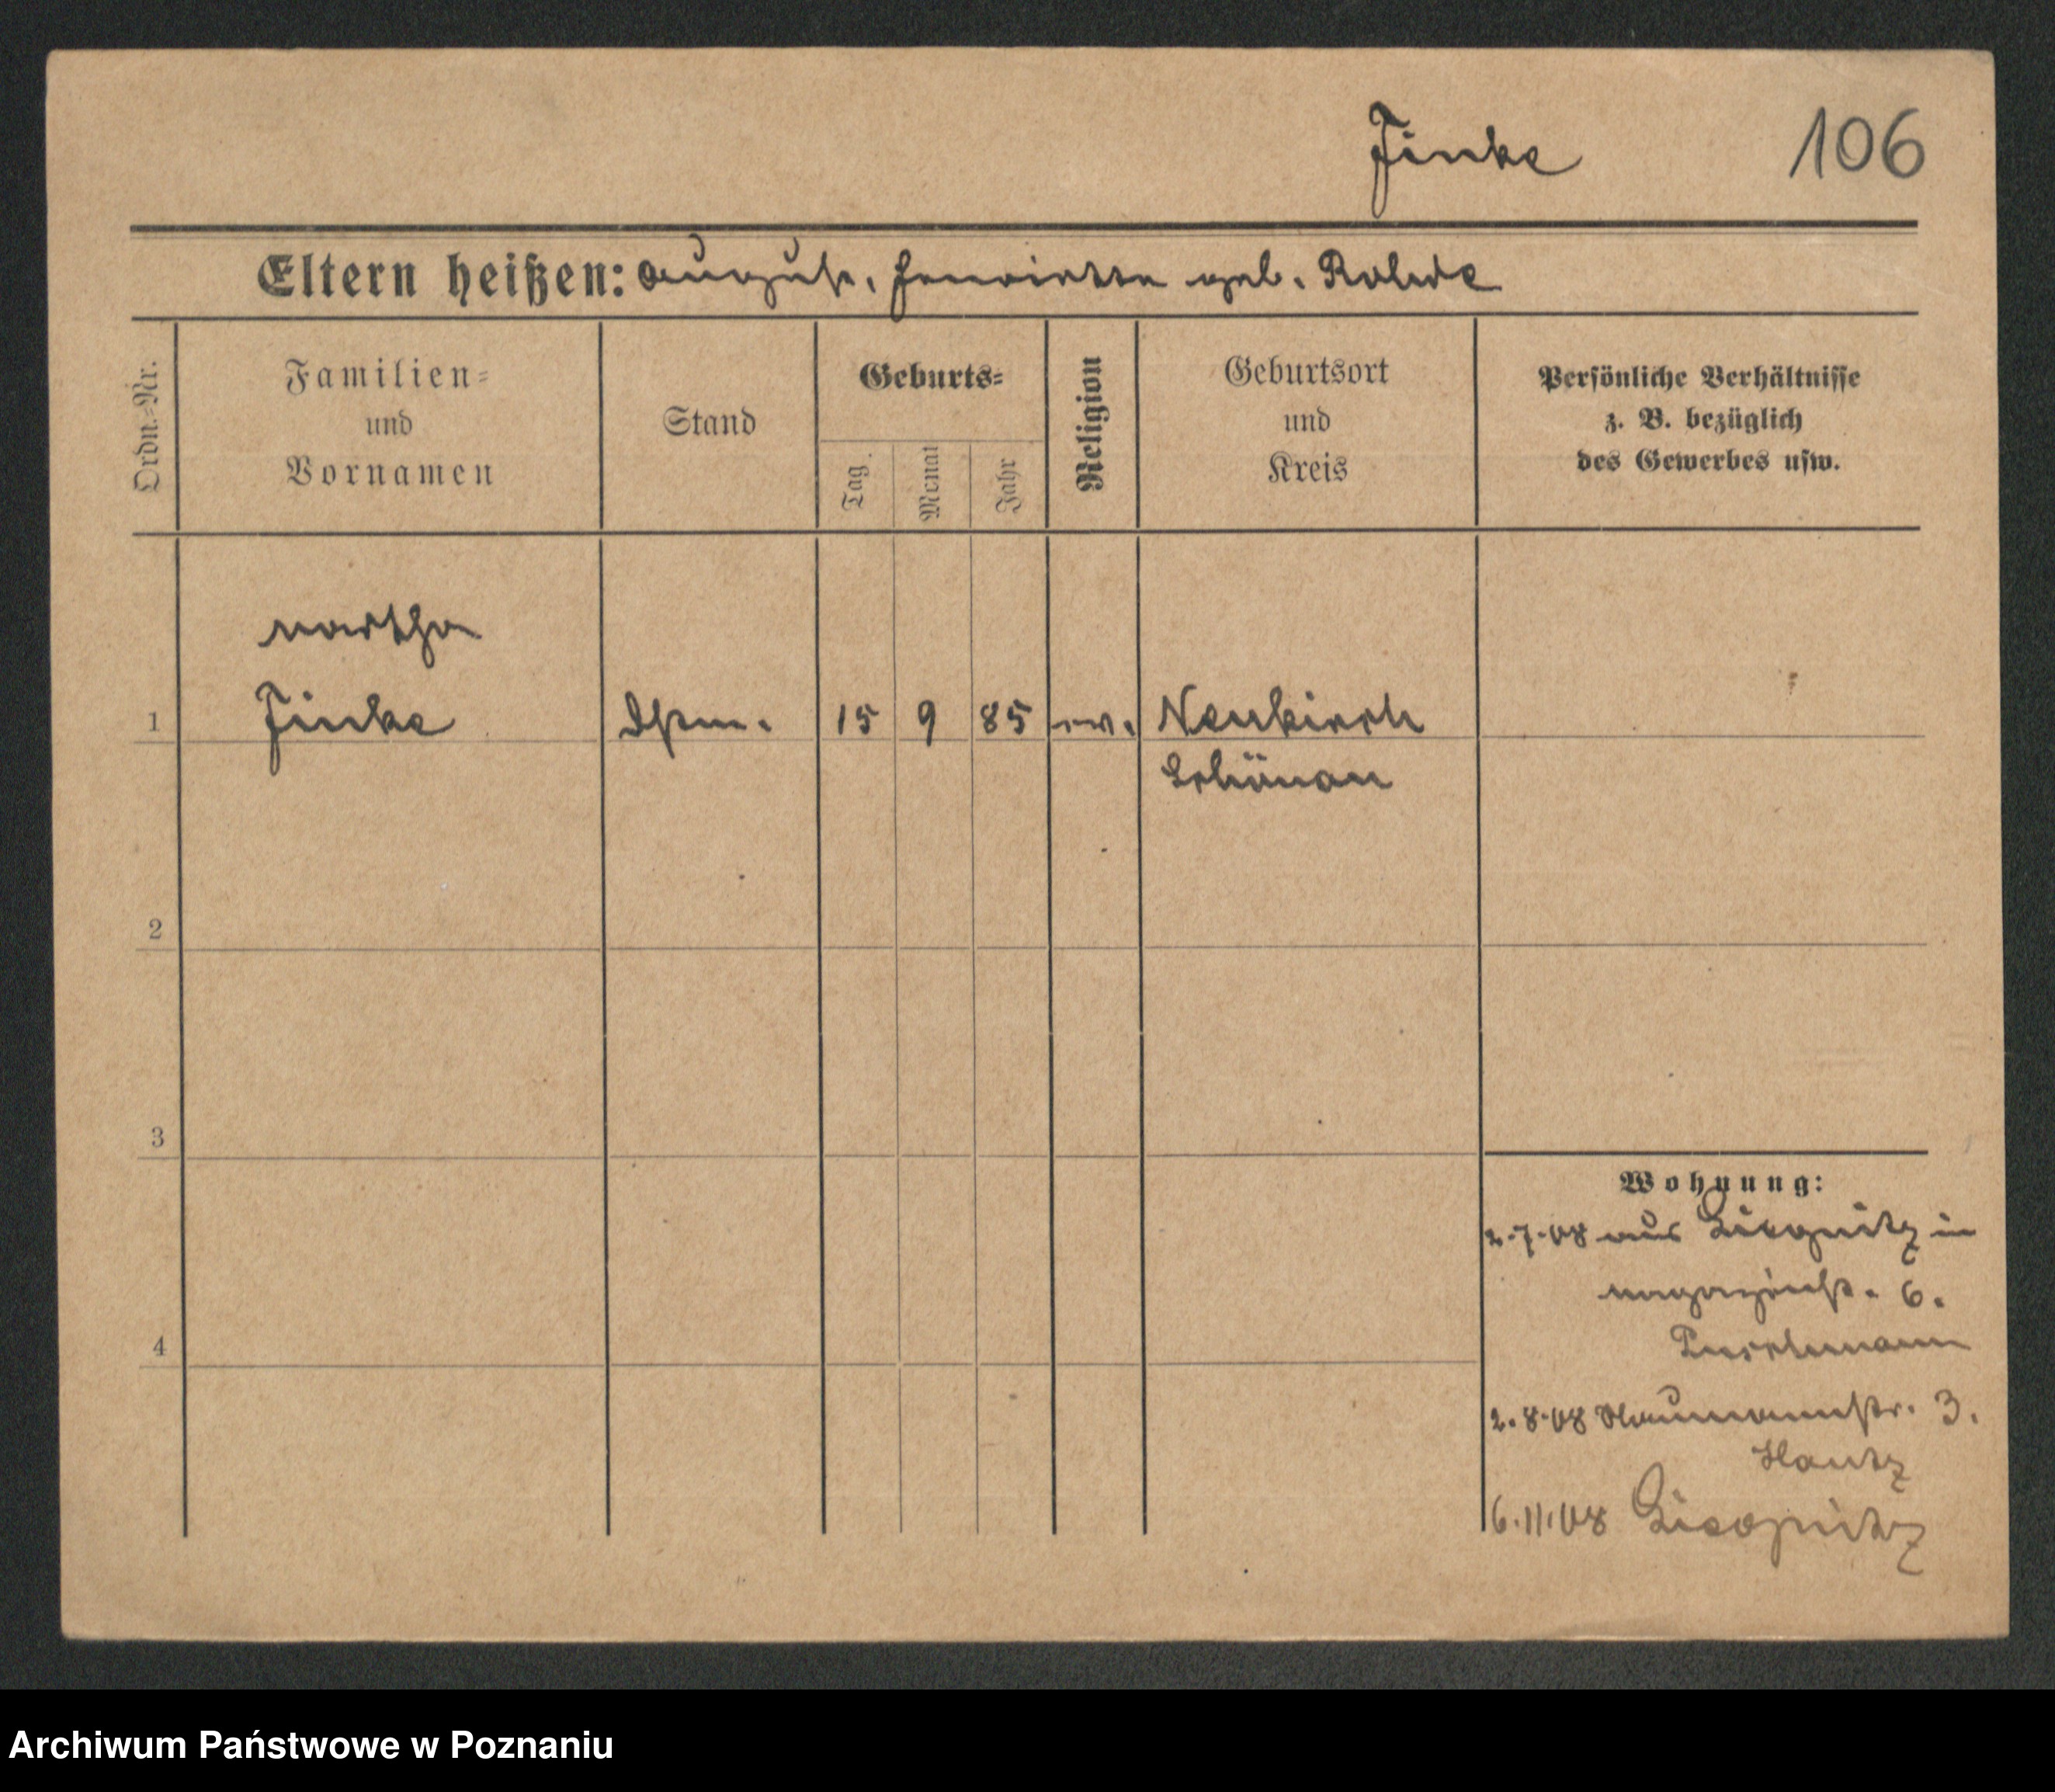 Finke 106
Eltern heißen: August, Henriette geb. Rohde
Ordn.-Nr.
Familien-
und
Vornamen
Stand
Geburts-
Tag.
Monat
Jahr
Religion
Geburtsort
und
Kreis
Persönliche Verhältnisse
z. B. bezüglich
des Gewerbes usw.
Martha
1 Finke 15 9 85 ev. Neukirch
Schönau
2
3
4
Wohnung:
2.7.08 aus Liegnitz in
Magazinst. 6.
Puschmann
2.8.08 Naumannstr. 3.
6.11.08 Liegnitz
Archiwum Państwowe w Poznaniu